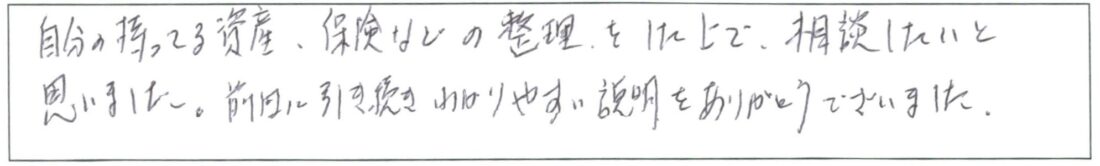 自分の持ってる資産、保険などの整理をした上で、相談したいと
思いました。前回に引き続きわかりやすい説明をありがとうございました。